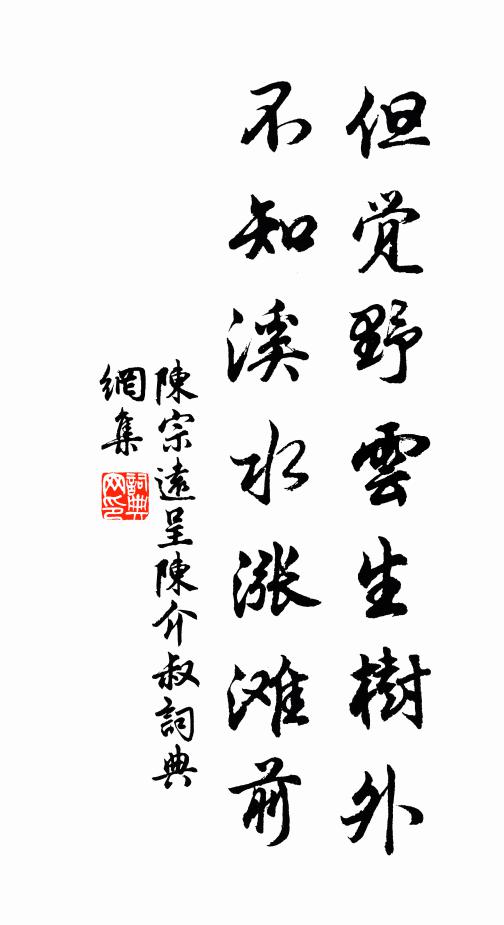 但觉野雲生樹外
不知溪水涨滩前
陳宗遠呈陳介叔詞典
網集
詞典
网印